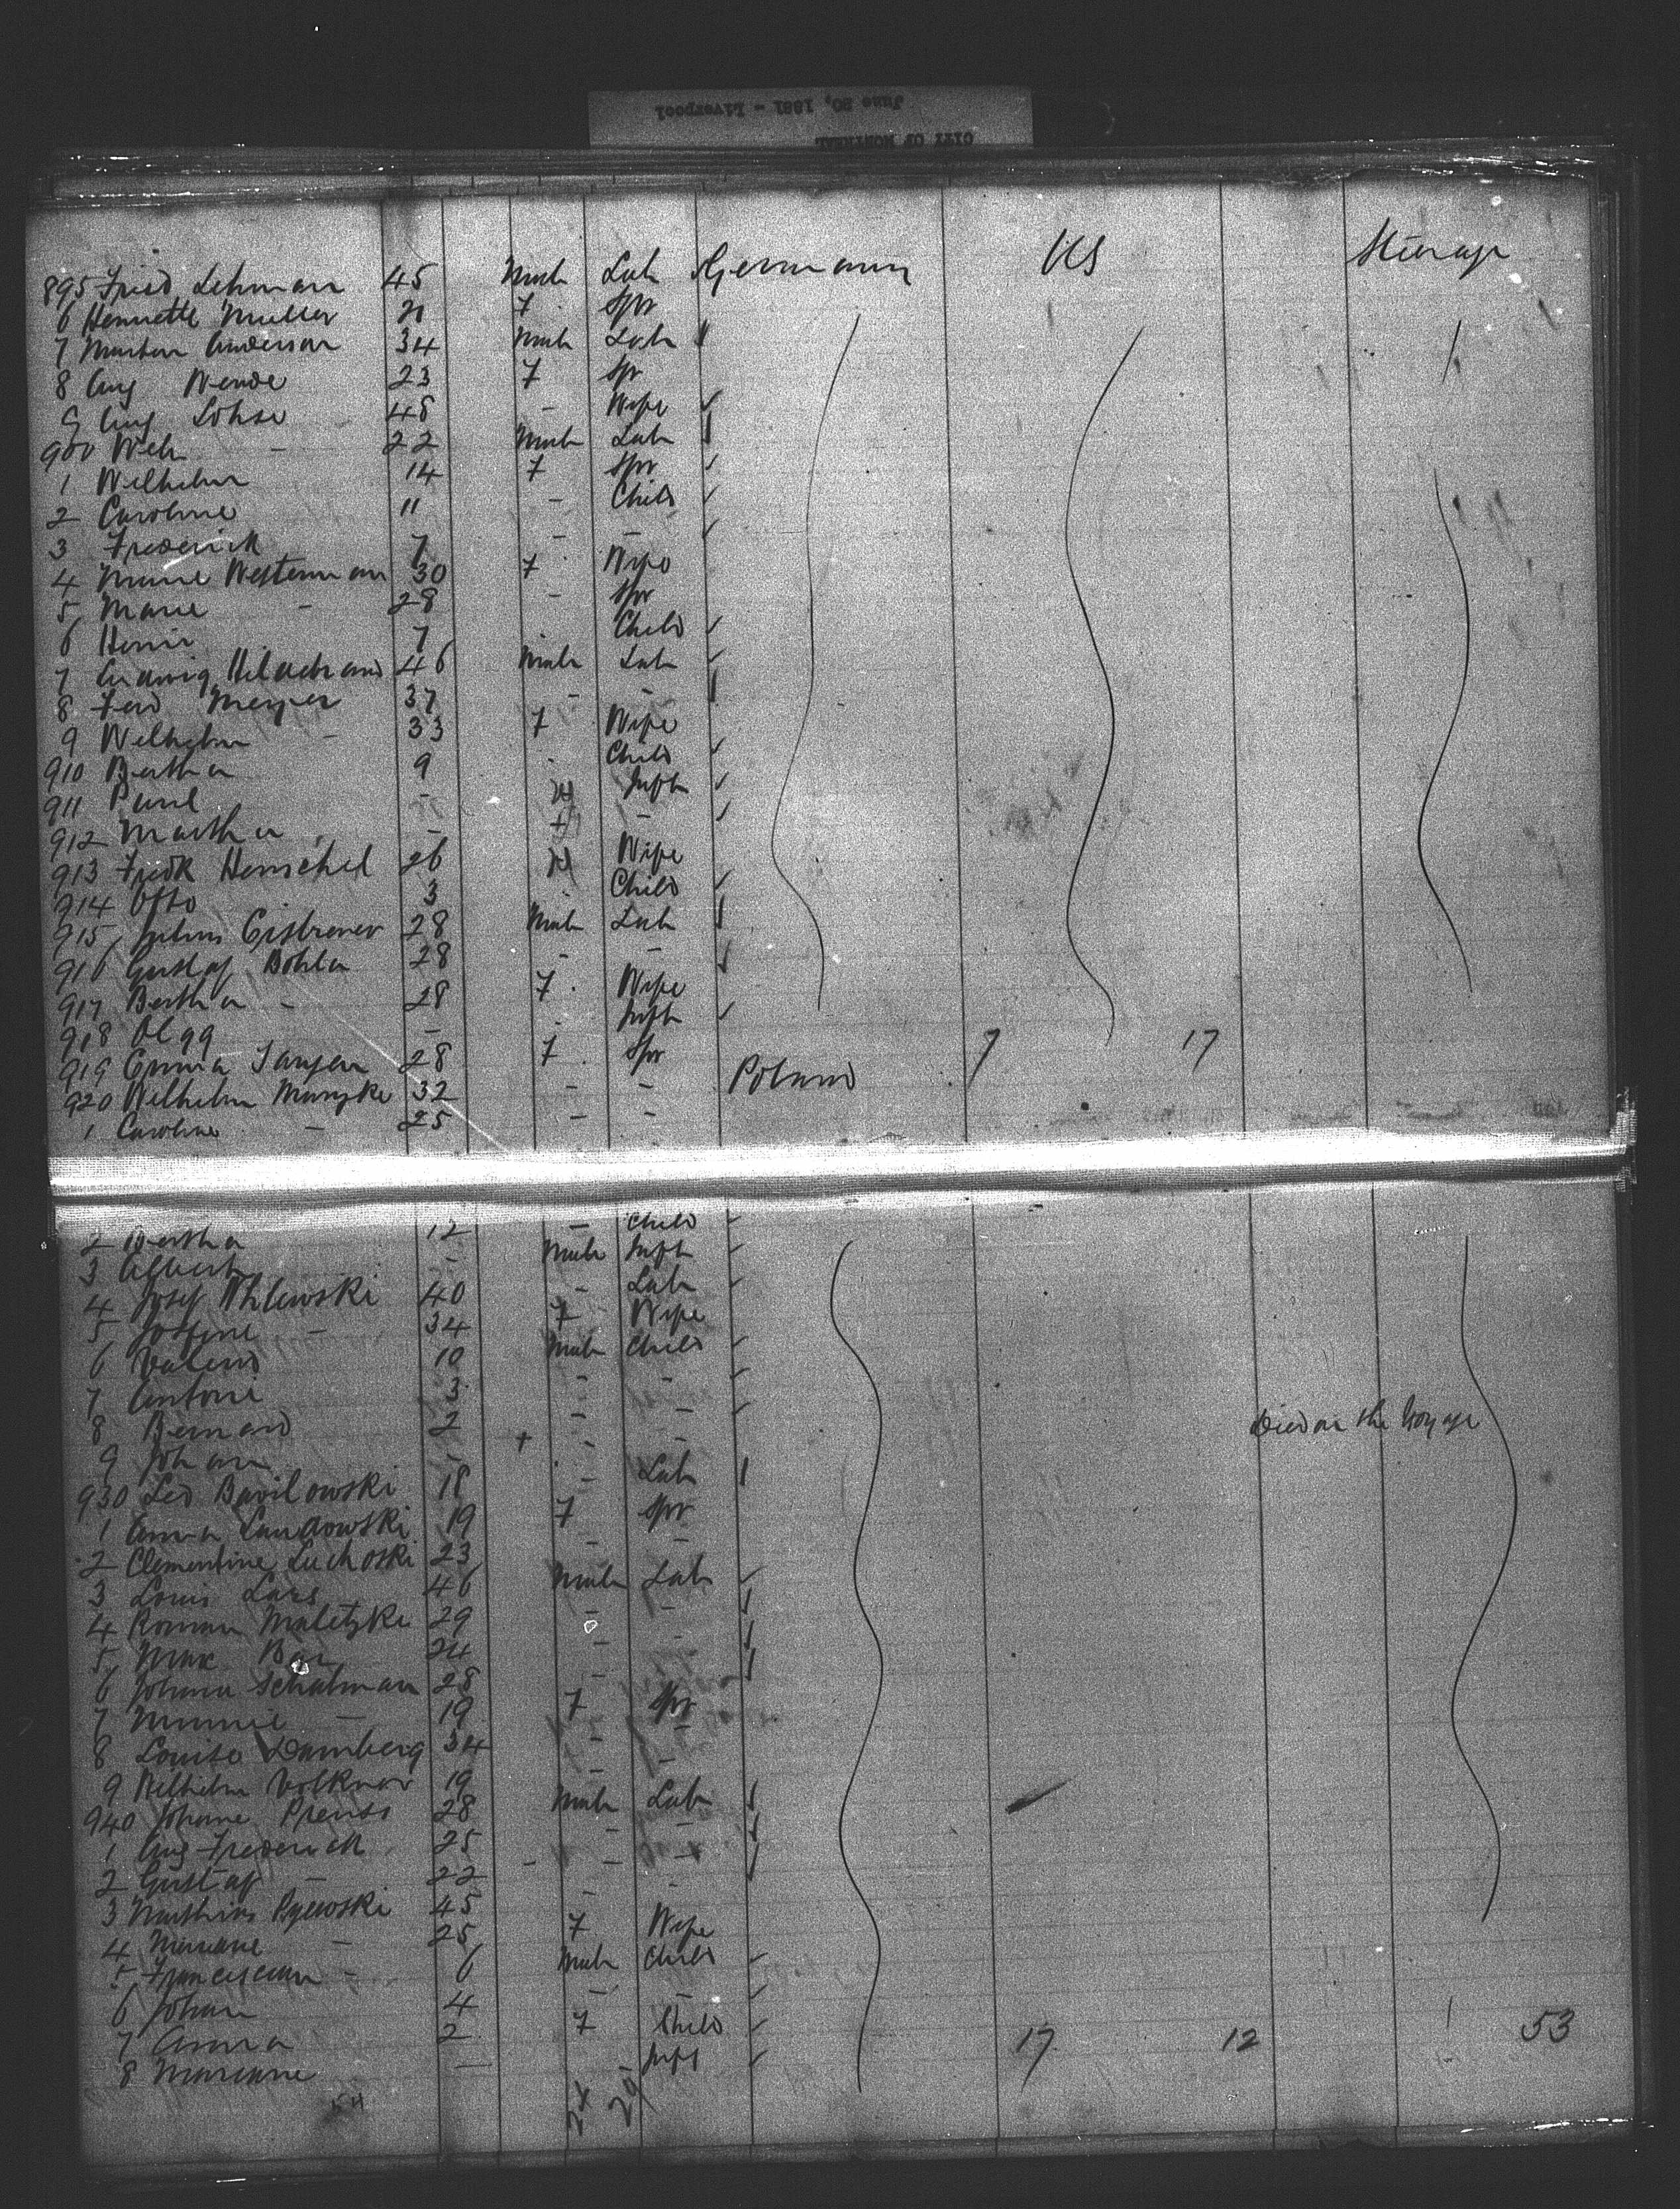 CITY OF MONTREAL
June 20, 1881 - Liverpool
895 Fried Lehman 45 Male Lab Germany US Steerage
6 Henriette Muller 21 F Spr
7 Martin Anderson 34 Male Lab
8 Aug Wende 23 F Spr
9 Aug Lohse 48 - Wife
900 Welh - 22 Male Lab
1 Wilhelm 14 F Spr
2 Caroline 11 - Child
3 Frederick 7 - -
4 Marie Westerman 30 F Wife
5 Marie - 28 - Spr
6 Henri 7 Child
7 Ludwig Hildebrand 46 Male Lab
8 Ferd Meyer 37 - -
9 Wilhelm - 33 F Wife
910 Bertha 9 Child
911 Paul - M Inft
912 Martha - F -
913 Fredk Henschel 26 Wife
914 Otto 3 Child
915 Julius 28 Male Lab
916 Gustaf Bohla 28 - -
917 Bertha - 28 F Wife
918 Olga - - Inft
919 Emma Jansen 28 F Spr 7 17
920 Wilhelm Manyke 32 - - Poland
1 Caroline - 25 - -
2 Bertha 12 - Child
3 Albert - Male Inft
4 Josef Whlewski 40 - Lab
5 Josfine - 34 F Wife
6 Valens 10 Male Child
7 Antoni 3 - -
8 Bernard 2 - -
9 Johan - + - - Died on the Voyage
930 Leo Bavilowski 18 - Lab
1 Anna Landowski 19 F Spr
2 Clementine Luchoski 23 - -
3 Louis Lars 46 Male Lab
4 Roman Maletzke 29 - -
5 Max 24 - -
6 Johann Schatman 28 - -
7 Minnie - 19 F Spr
8 Louise Damberg 34 - -
9 Wilhelm Volkmar 19 -
940 Johane Preuss 28 Male Lab
1 Aug Frederick 25 - -
2 Gustaf - 22 - -
3 Mathias Pyewski 45 - -
4 Mariane - 25 F Wife
5 Franciscian - 6 Male Child
6 Johan 4 - -
7 Anna 2 F Child
8 Mariane - - Inft 17 12 53
54 24 29